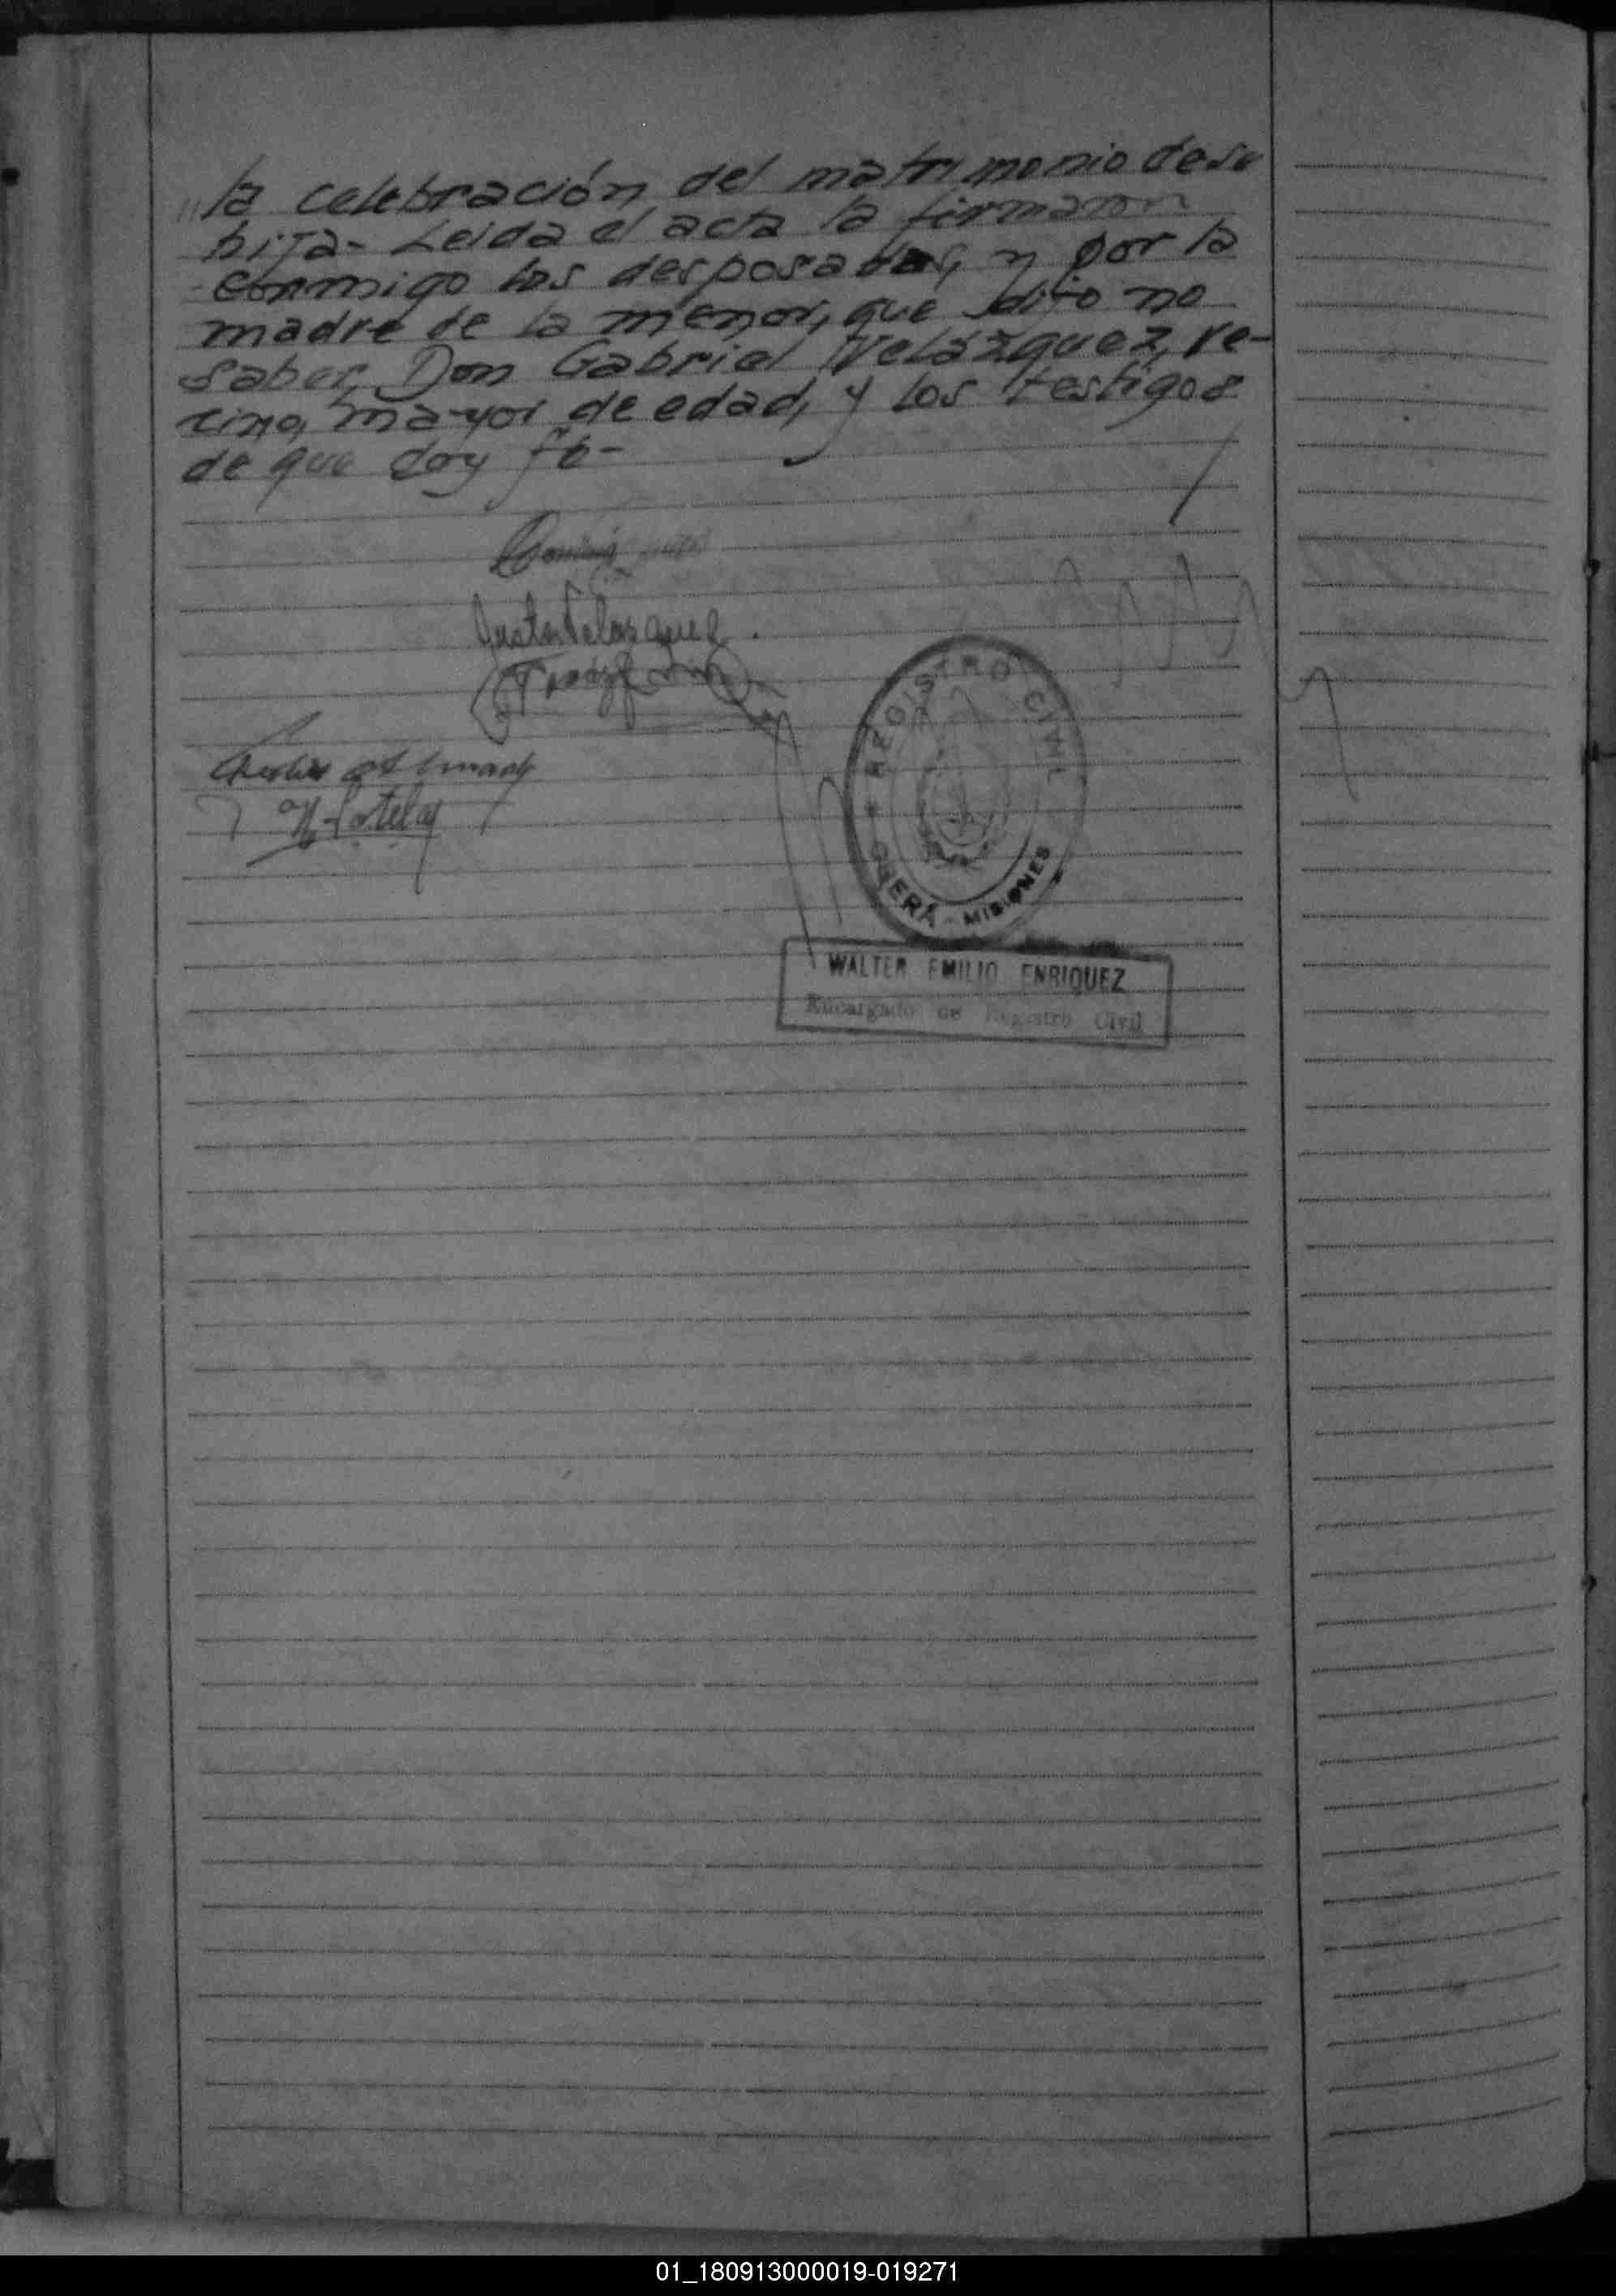 "la celebración del matrimonio de su
hija- Leida el acta la firmaron
conmigo los desposados, y por la
madre de la menor, que dijo no
saber, Don Gabriel Velázquez, ve-
cino, mayor de edad, y los testigos
de que doy fé-
Justa Velasquez
REGISTRO CIVIL
OBERÁ - MISIONES
WALTER EMILIO ENRIQUEZ
Encargado de Registro Civil
01_180913000019-019271